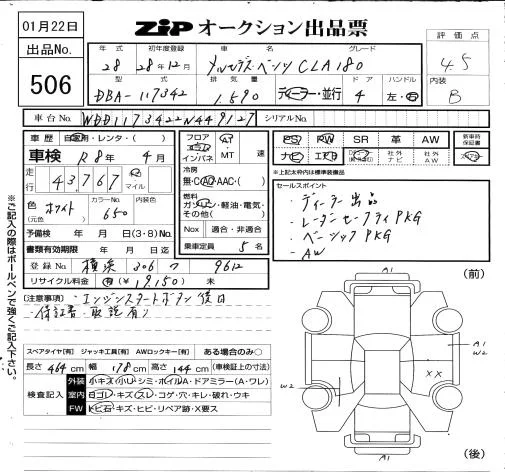 01月22日
出品No.
506
ZIP オークション出品票
評価点
4.5
内装
B
年式 初年度登録 車名 グレード
28 28年12月 メルセデス・ベンツ CLA180
型式 排気量 ドア ハンドル
DBA-117342 1.590 ディーラー・並行 4 左・右
車台No. WDD1173422N449127 シリアルNo.
車歴 自家用・レンタ・( )
車検 R8年 4月
走行 43,767 Km マイル
色(元色) ホワイト カラーNo. 650 内装色
予備検 年 月 日(3・8)No.
書類有効期限 年 月 日迄
登録No. 横浜 306 9612
リサイクル料金 有(¥19,150) 未
フロア
コラム
インパネ
AT
MT 速
冷房
無・CAC・AAC・( )
燃料
ガソリン・軽油・電気・
その他( )
Nox 適合・非適合
乗車定員 5名
PS PW SR 革 AW
ナビ エアB 社外ナビ 社外AW
新車時保証書
*上記太枠内は標準装備品
セールスポイント
・ディーラー出品
・レーダーセーフティPKG
・ベーシックPKG
・AW
注意事項・エンジンスタートボタン後日
・保証書・取説有り
スペアタイヤ[有] ジャッキ工具[有] AWロックキー[有] ある場合のみ○
長さ 464cm 幅 178cm 高さ 144cm (車検証上の寸法)
検査記入
外装 小キズ・小凹・シミ・ホイルA・ドアミラー(A・ワレ)
室内 ヨゴレ・キズ・スレ・コゲ・穴・キレ・破れ・ウキ
FW トビ石・キズ・ヒビ・リペア跡・X要ス
(前)
A1
A1
W2
W2
XX
A1
(後)
※ご記入の際はボールペンで強くご記入下さい。